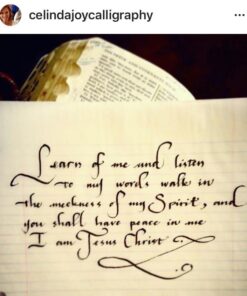 celindajoycalligraphy
Learn of me and listen
to my words walk in
the meekness of my Spirit, and
you shall have peace in me
I am Jesus Christ